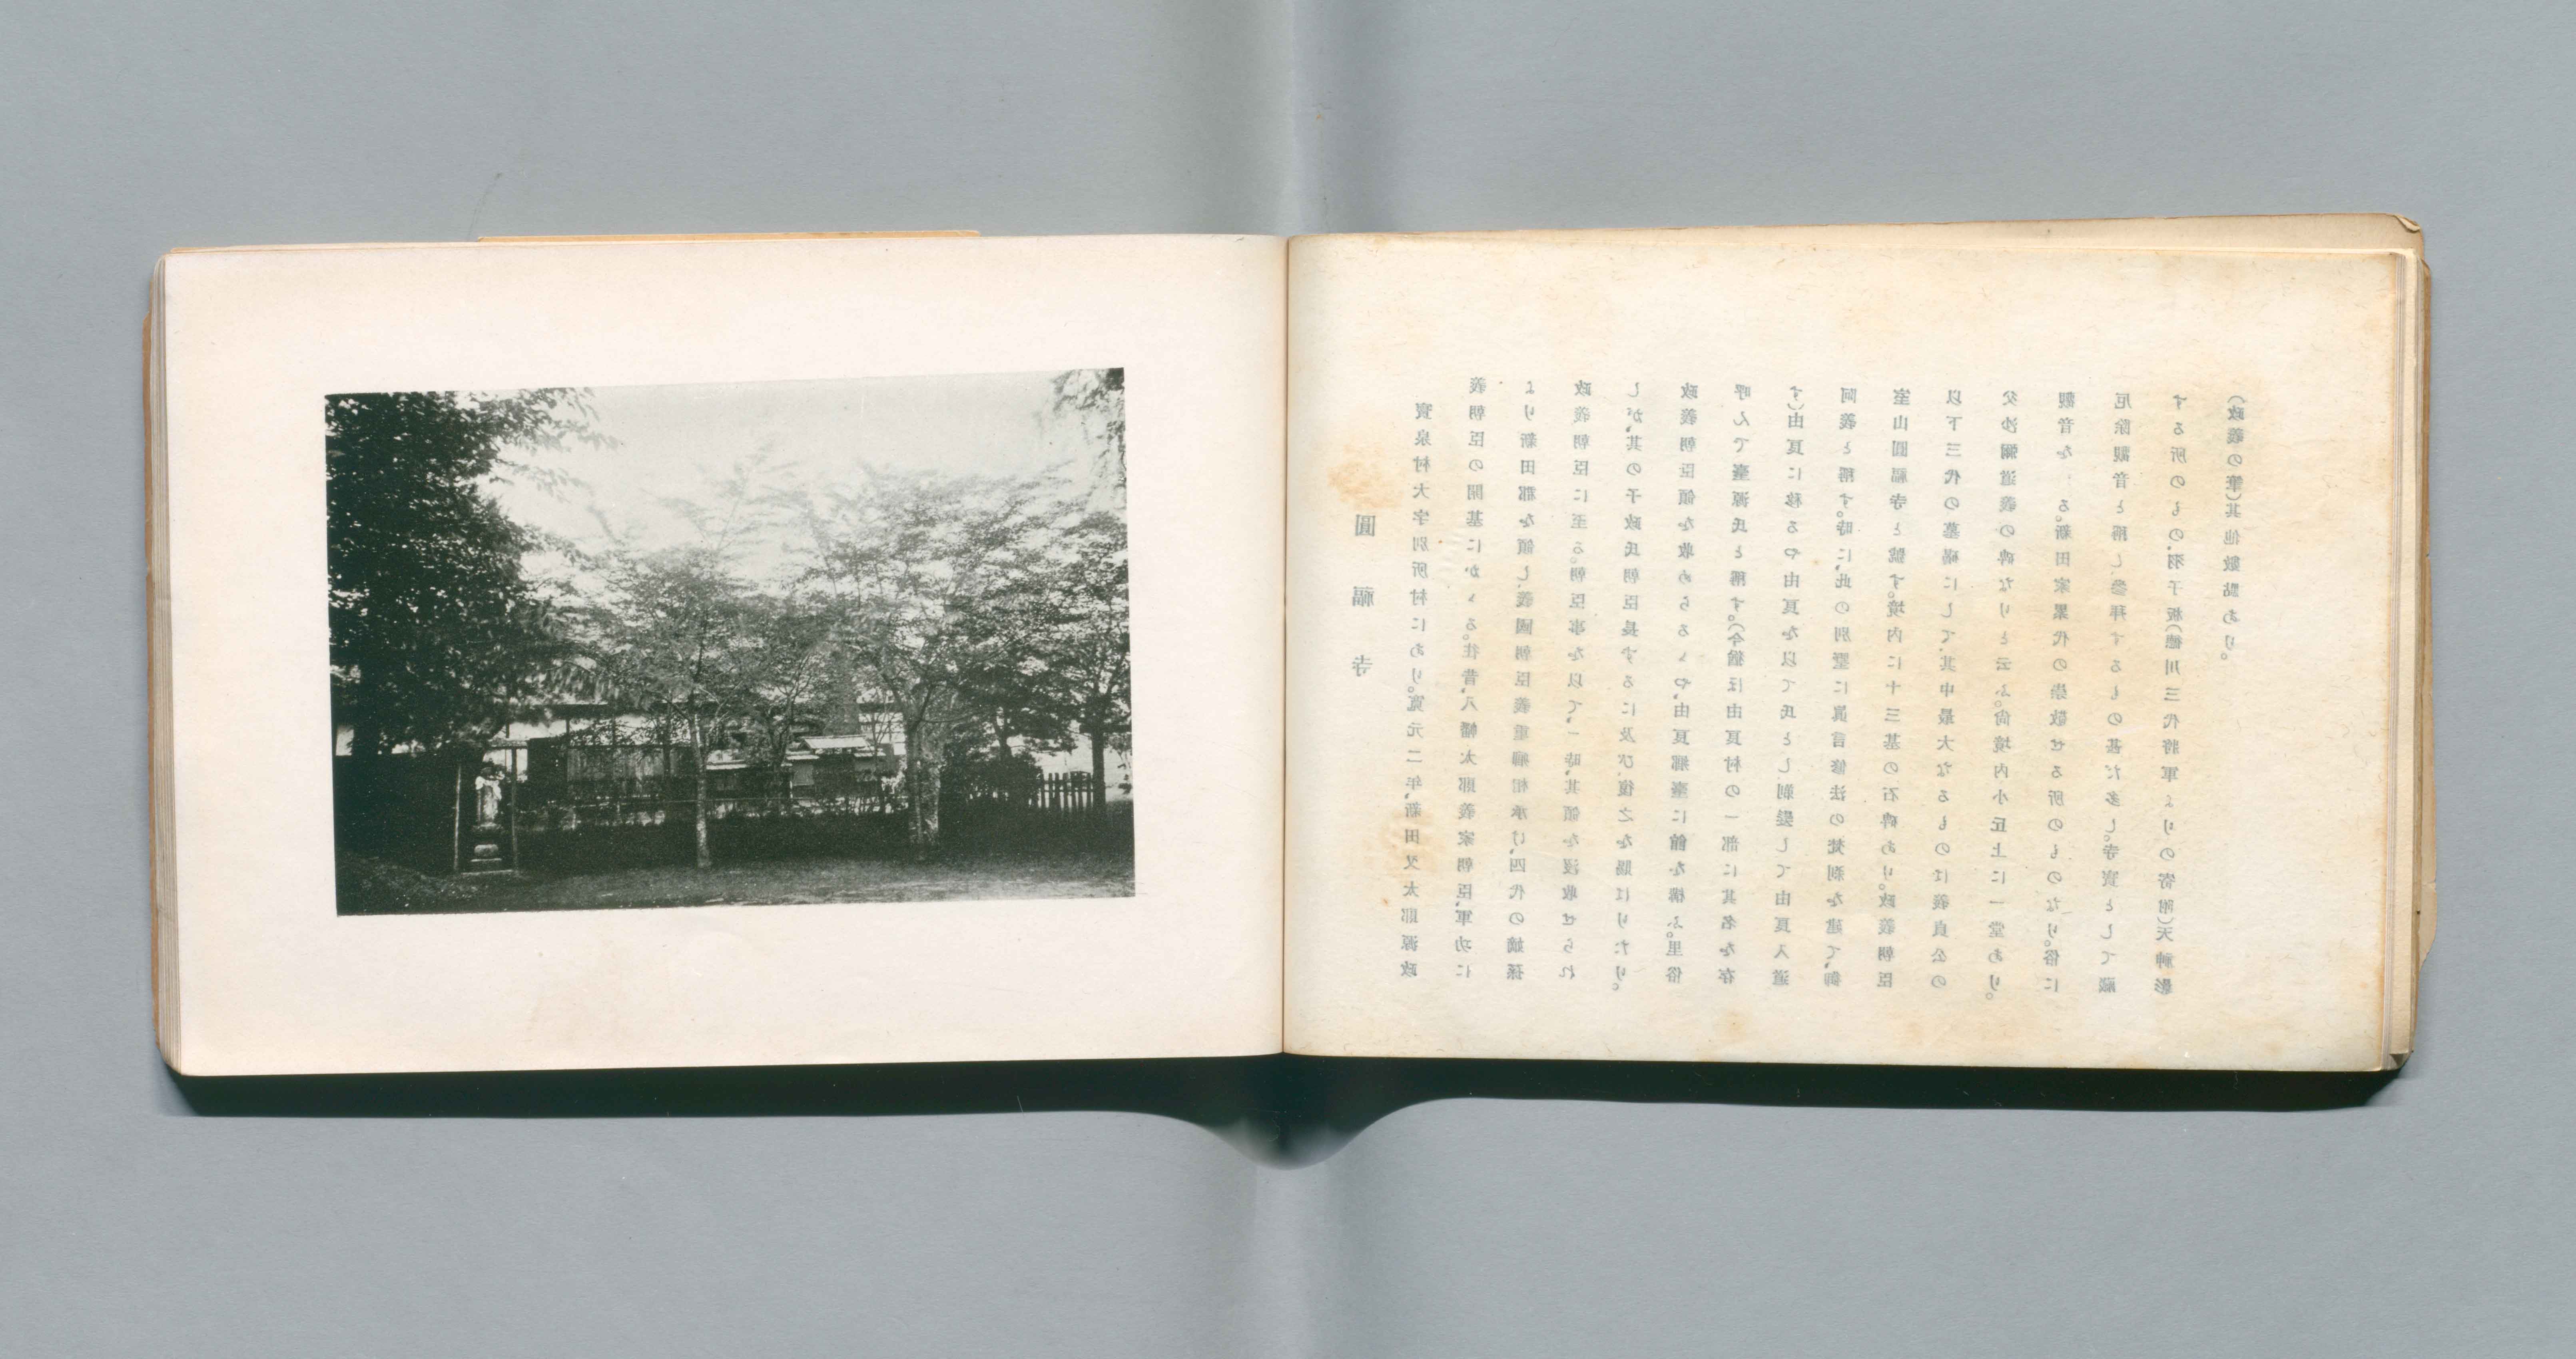 圓福寺
寶泉村大字別所村にあり。寛元二年、新田又太郎源政
義朝臣の開基にかゝる。往昔、八幡太郎義家朝臣、軍功に
より新田郡を領し、義國朝臣義重卿相承け、四代の嫡孫
政義朝臣に至る。朝臣事を以て、一時、其領を沒收せられ
しが、其の子政氏朝臣長ずるに及び、復之を賜はりたり。
政義朝臣領を收めらるゝや、由良郷臺に館を構ふ。里俗
呼んで臺源氏と稱す。(今猶ほ由良村の一部に其名を存
す)由良に移るや由良を以て氏とし剃髮して由良入道
阿義と稱す。時に、此の別墅に眞言修法の梵刹を建て、御
室山圓福寺と號す。境内に十三基の石碑あり。政義朝臣
以下三代の墓碣にして、其中最大なるものは義貞公の
父沙彌道義の碑なりと云ふ。尚境内小丘上に一堂あり。
觀音を る。新田家累代の崇敬せる所のものなり。俗に
厄除觀音と稱し、參拜するもの甚だ多し。寺寶として藏
する所のもの、羽子板(德川三代將軍よりの寄附)天神影
(政義の筆)其他數點あり。